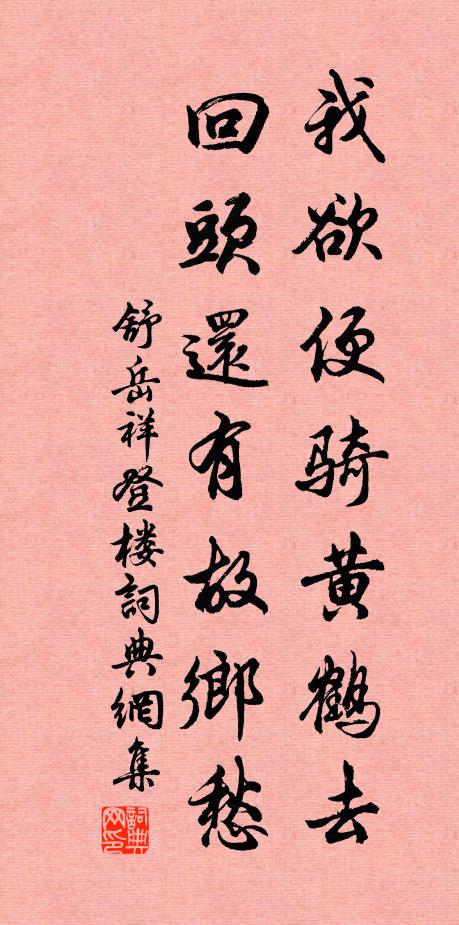 我欲便騎黄鶴去
回頭還有故鄉愁
舒岳祥登楼詞典網集
詞典网印